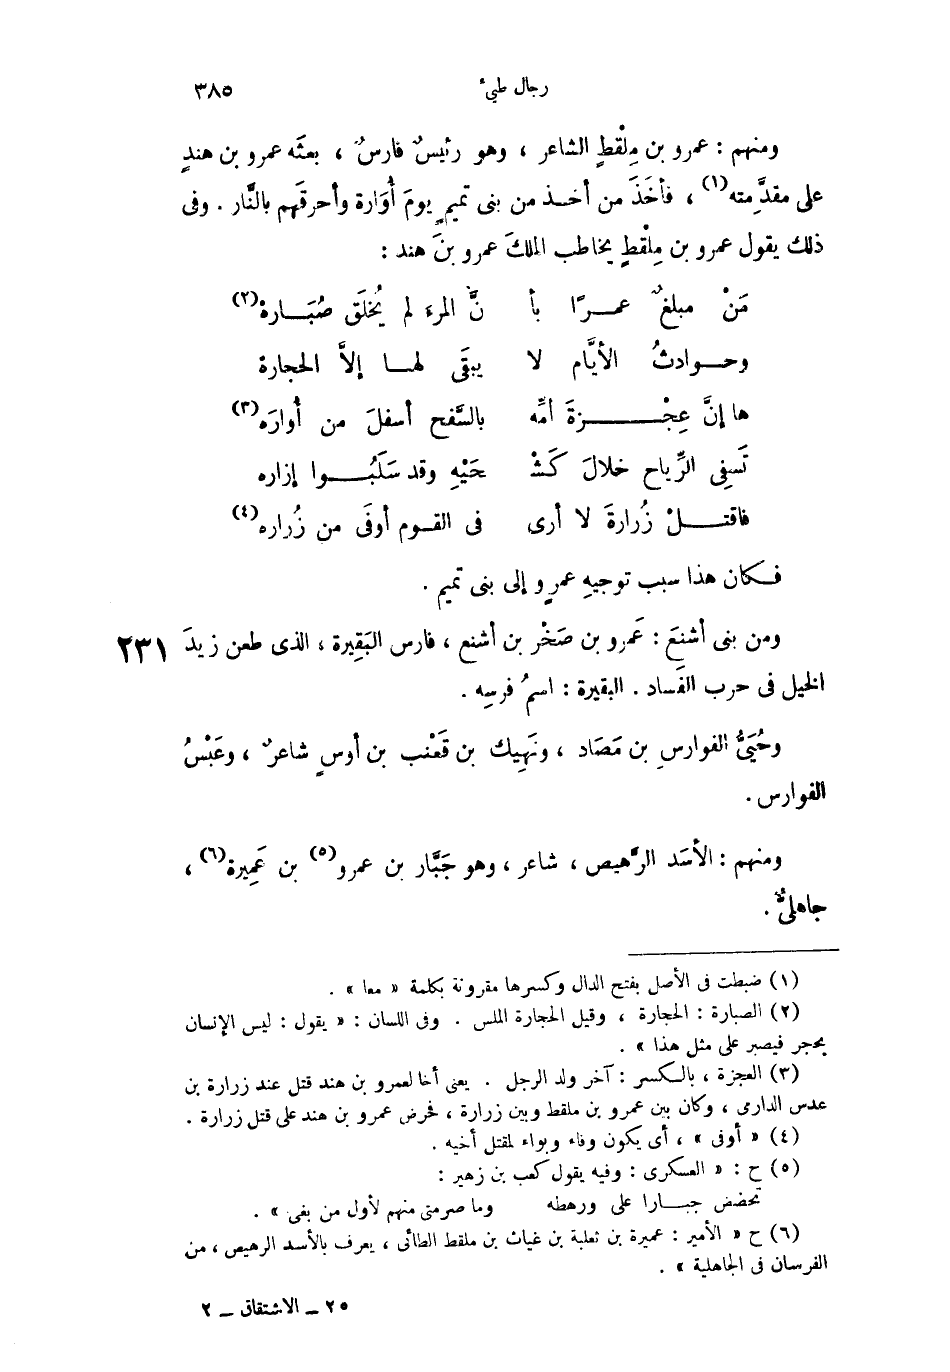 رجال طيئ ٣٨٥
ومنهم : عمرو بن مِلْقطٍ الشاعر ، وهو رئيسٌ فارسٌ ، بعثَه عمرو بن هندٍ
على مقدَّمِته(١) ، فأخَذَ من أخذ من بنى تميمٍ يومَ أُوَارة وأحرقَهم بالنَّار . وفى
ذلك يقول عمرو بن مِلْقطٍ يخاطب الملكَ عمرو بنَ هند :
مَنْ مبلغٌ عمرًا بأ نَّ المرءَ لم يُخلَق صُبَارة(٢)
وحوادثُ الأيَّام لا يبقَى لها إلاَّ الحجارة
ها إنَّ عِجْزةَ أمِّه بالسَّفح أسفلَ من أُوارَه(٣)
تَسفِى الرِّياح خلالَ كَشْ حَيْهِ وقد سَلَبُوا إزاره
فاقتلْ زُرارةَ لا أرى فى القوم أوفَى من زُراره(٤)
فكان هذا سبب توجيهِ عمرٍو إلى بنى تميم .
ومن بنى أشنعَ : عَمرو بن صَخْر بن أشنع ، فارس البَقِيرة ، الذى طعن زيدَ ٢٣١
الخيل فى حرب الفَساد . البقيرة : اسمُ فرسِه .
وحُيَىُّ الفوارسِ بن مَصَاد ، ونَهِيك بن قَعْنب بن أوسٍ شاعرٌ ، وعَبْسُ
الفوارس .
ومنهم : الأسَد الرَّهيص ، شاعر ، وهو جَبَّار بن عمرو(٥) بن عَمِيرة(٦) ،
جاهلىٌّ .
(١) ضبطت فى الأصل بفتح الدال وكسرها مقرونة بكلمة « معا » .
(٢) الصبارة : الحجارة ، وقيل الحجارة الملس . وفى اللسان : « يقول : ليس الإنسان
بحجر فيصبر على مثل هذا » .
(٣) العجزة ، بالكسر : آخر ولد الرجل . يعنى أخا لعمرو بن هند قتل عند زرارة بن
عدس الدارمى ، وكان بين عمرو بن ملقط وبين زرارة ، فحرض عمرو بن هند على قتل زرارة .
(٤) « أوفى » ، أى يكون وفاء وبواء لمقتل أخيه .
(٥) ح : « العسكرى : وفيه يقول كعب بن زهير :
تحضض جبارا على ورهطه وما صرمتى منهم لأول من بغى » .
(٦) ح « الأمير : عميرة بن ثعلبة بن غياث بن ملقط الطائى ، يعرف بالأسد الرهيص ، من
الفرسان فى الجاهلية » .
٢٥ ــ الاشتقاق ــ ٢